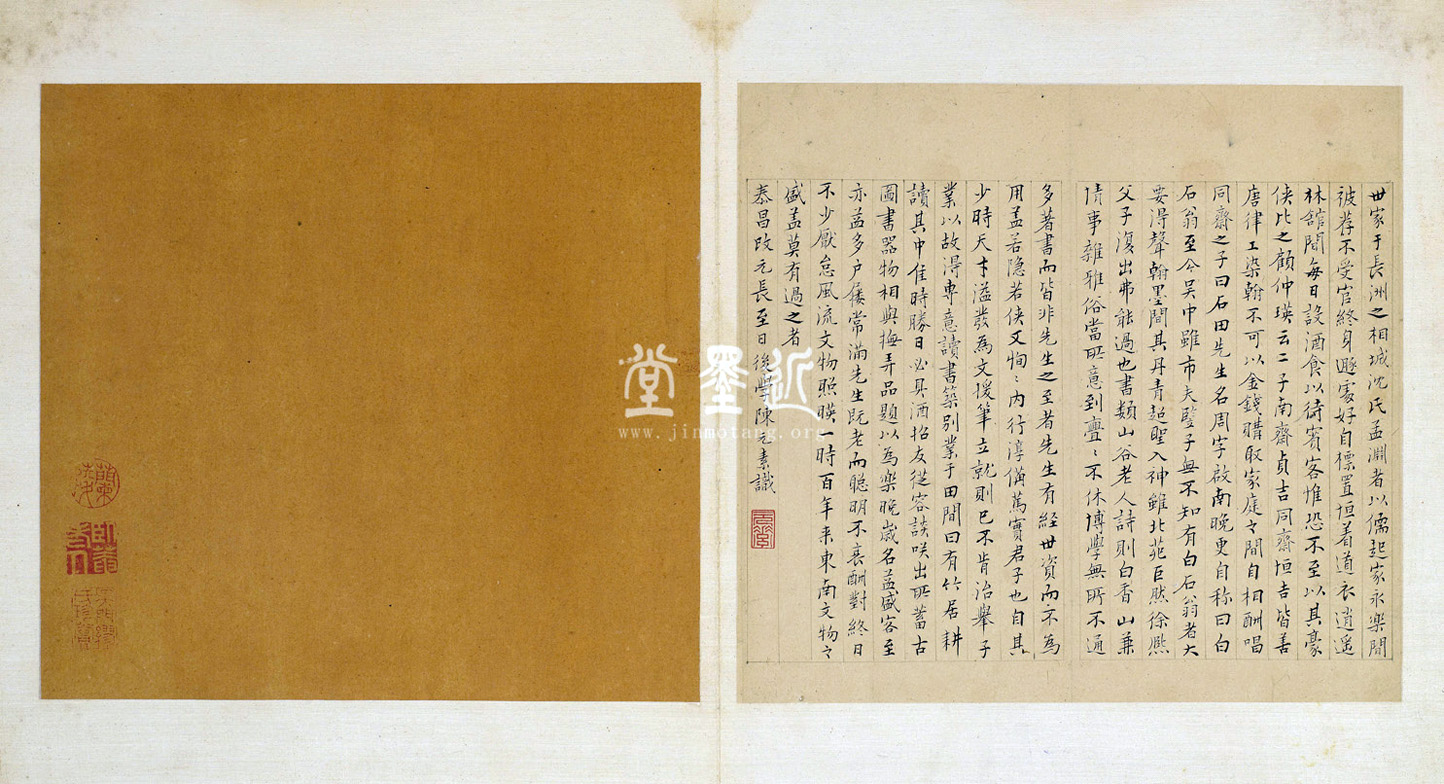 世家于長洲之相城沈氏孟淵者以儒起家永樂間
被荐不受官終身遯處好自標置恒着道衣逍遥
林舘間每日設酒食以待賓客惟恐不至以其豪
侠比之顧仲瑛云二子南齋貞吉同齋恒吉皆善
唐律工染翰不可以金錢購取家庭之間自相酬唱
同齋之子曰石田先生名周字啟南晚更自称曰白
石翁至今吴中雖市夫豎子無不知有白石翁者大
要得聲翰墨間其丹青超聖入神雖北苑巨然徐熙
父子復出弗能過也書類山谷老人詩則白香山兼
情事雜雅俗當所意到亹〻不休博學無所不通
多著書而皆非先生之至者先生有経世資而不為
用盖若隐若侠又恂〻内行淳備蔫實君子也自其
少時天才溢發為文援筆立就則已不肯治舉子
業以故得専意讀書築别業于田間曰有竹居耕
讀其中佳時勝日必具酒招友從容談咲出所蓄古
圖書器物相與撫弄品題以為樂晚歲名益盛客至
亦益多户屨常滿先生既老而聡明不衰酬對終日
不少厭怠風流文物照暎一時百年来東南文物之
盛盖莫有過之者
泰昌改元長至日後學陳元素識
近墨堂
www.jinmotang.org